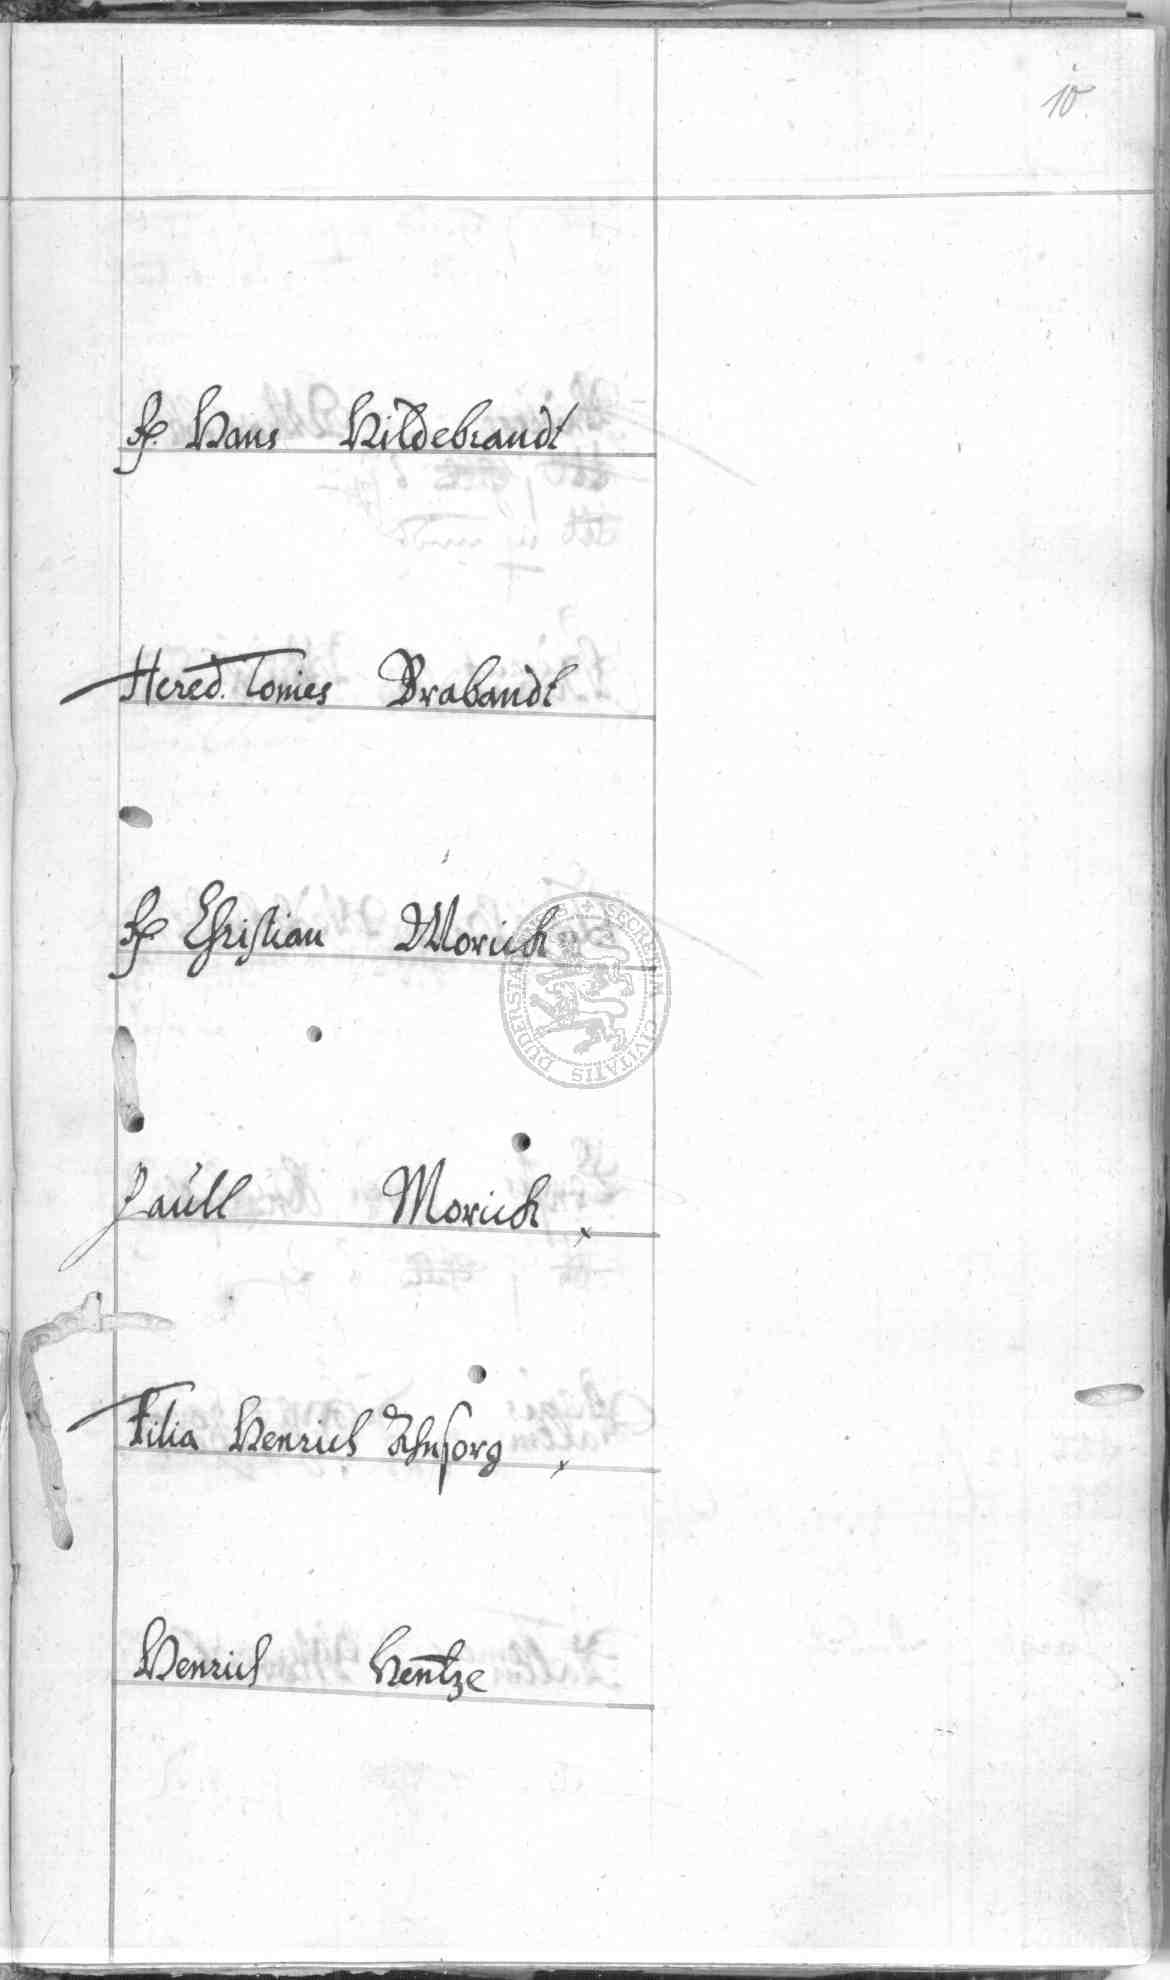 10
Hans Hildebrandt
Hered. Tonies Brabandt
Christian Morich
SECRETUM CIVITATIS DUDERSTADENSIS
Paull Morich
Filia Henrich Ahnsorg
Henrich Hentze